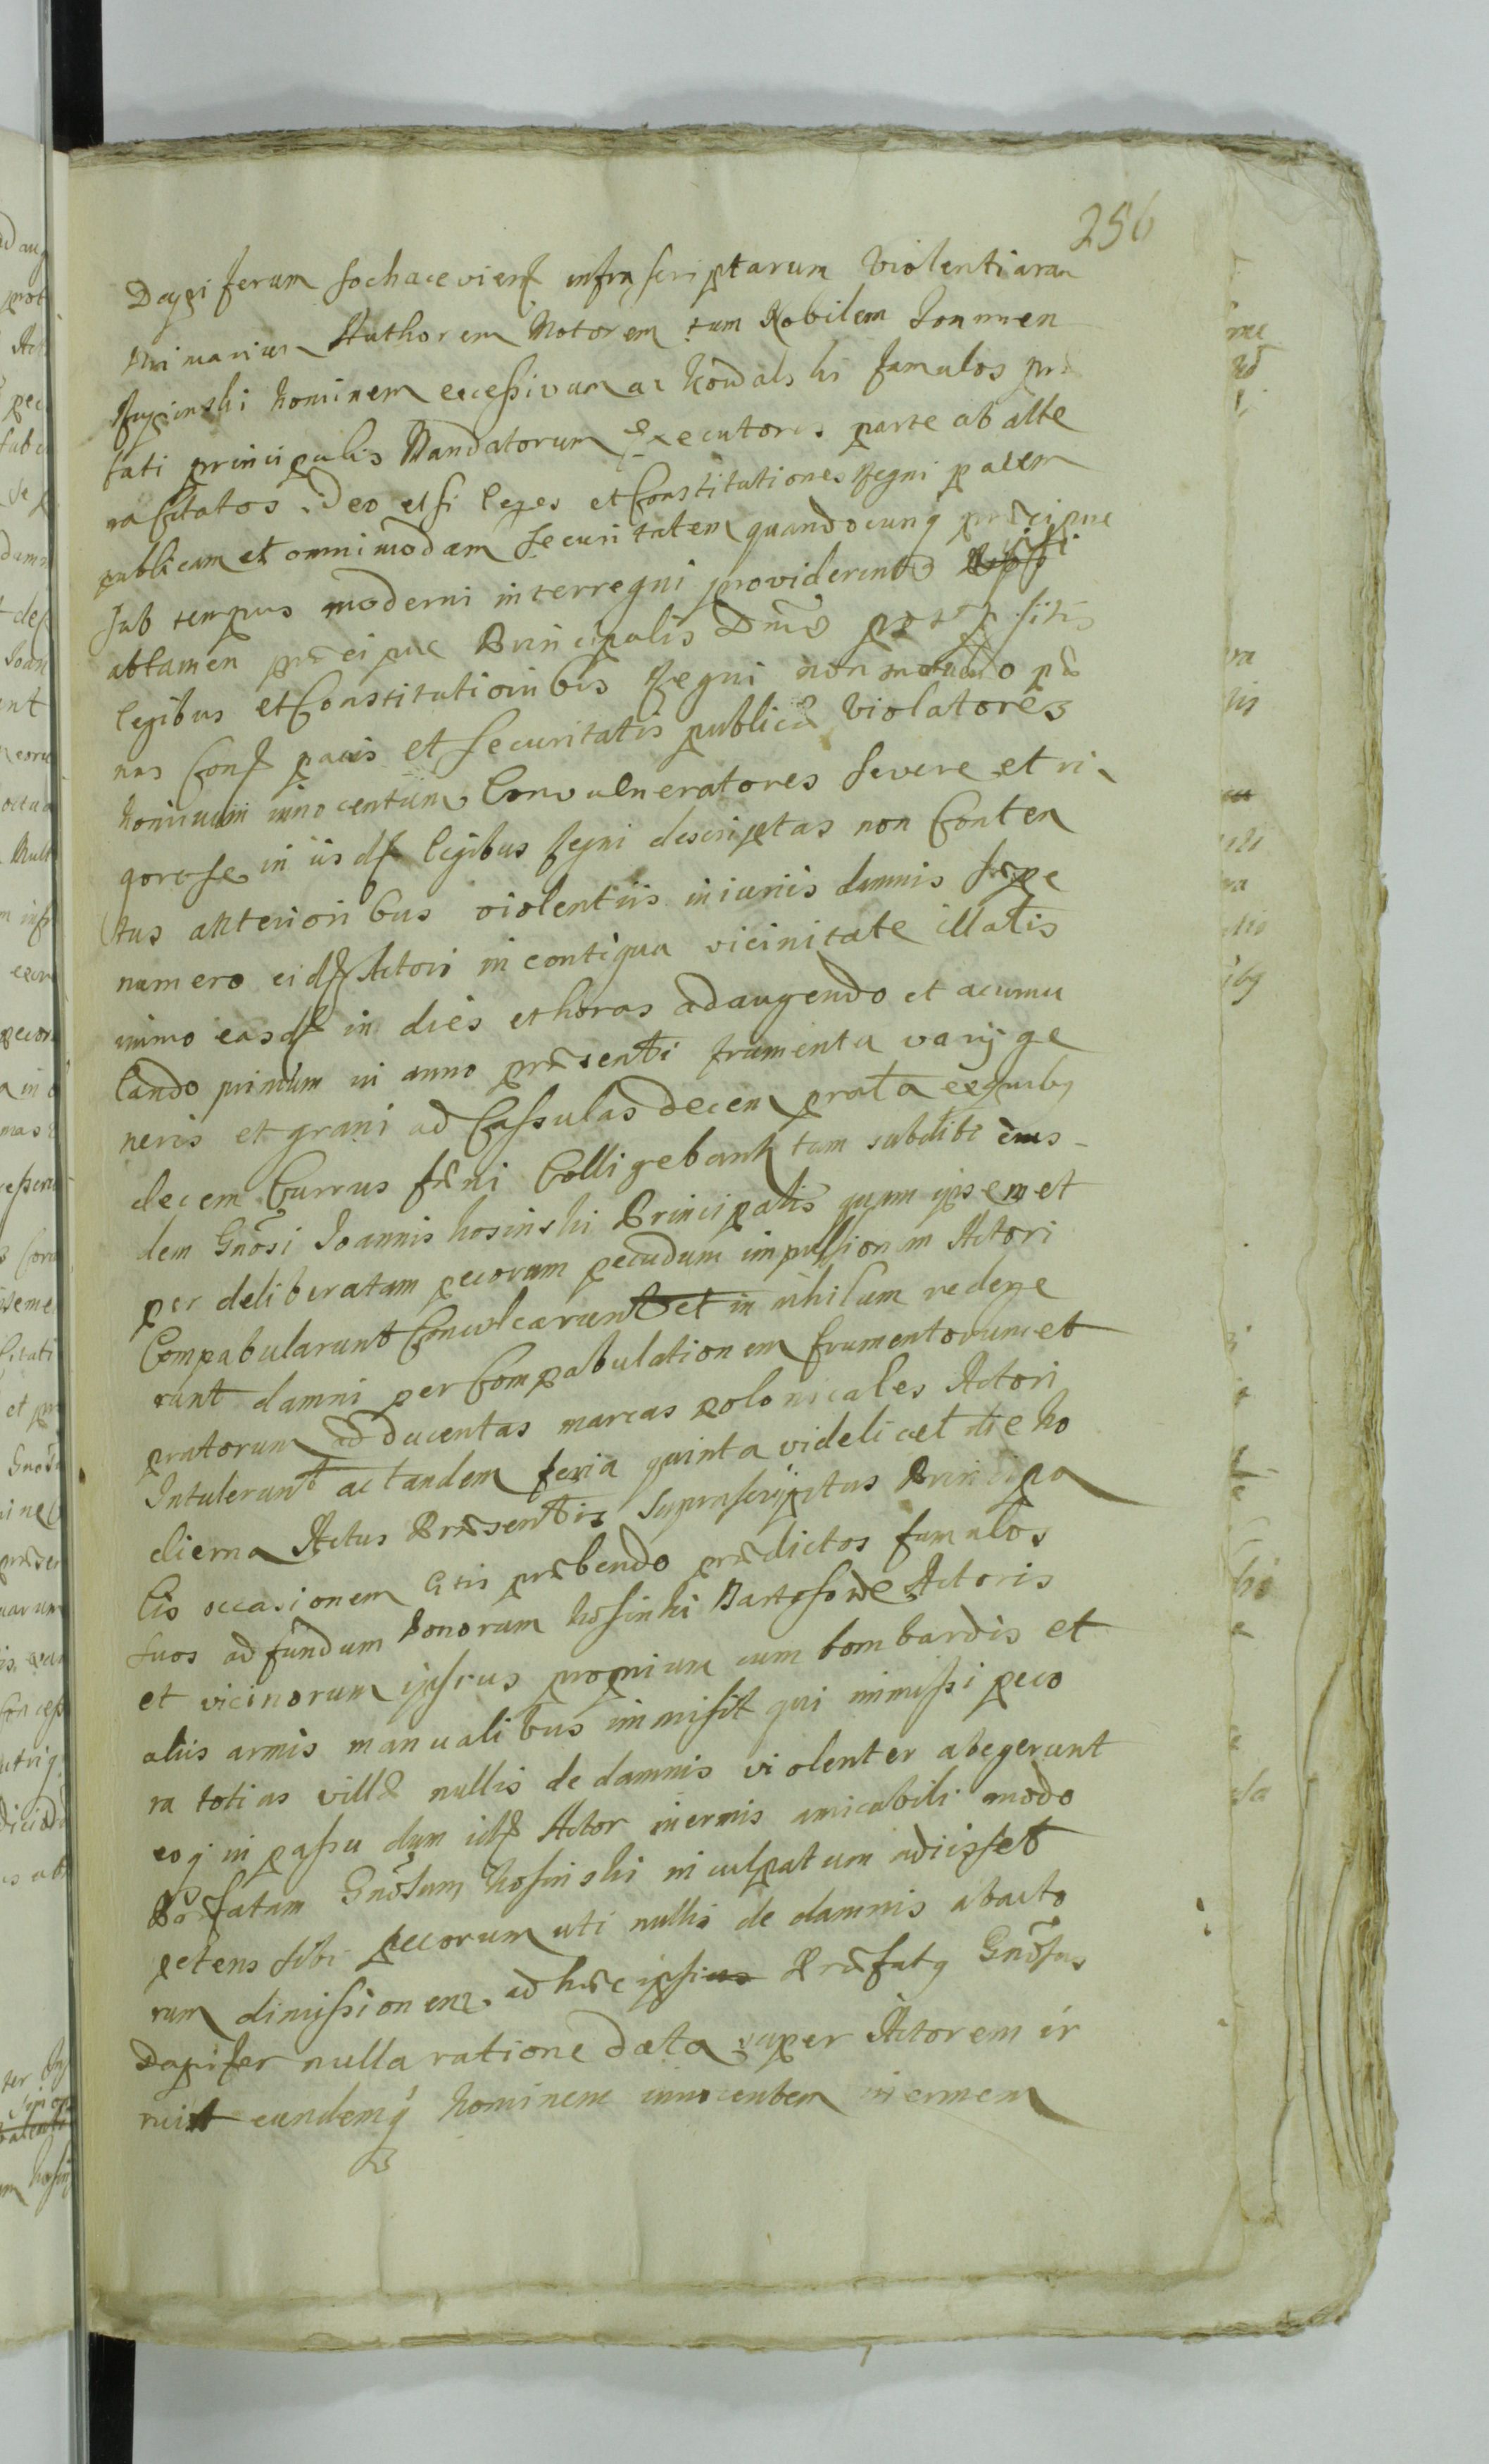 256
Dapiferum sochacevienſ infraſcriptarum Violentiarum
Primarium Authorem Motorem tum Nobilem Joannem
Rupinski hominem excessivum ac Kowalski famulos prae
fati principalis Mandatorum Executores parte ab alte
ra citatos. Deo etsi leges et Constitutiones Regni pacem
publicam et omnimodam securitatem quandocunq praecipue
sub tempus moderni interregni providerint
attamen praecipue Principalis postpositis
legibus et Constitutionibus Regni non metuendo pae
nas Conſ pacis et securitatis publicae Violatores
hominum innocentum Convulneratores severe et ri
gorose in iisdſ legibus Regni descriptas non Conten
tus anterioribus violentiis iniuriis damnis saepe
numero eidſ Actori in contigua vicinitate illatis
immo easdſ in dies et horas adaugendo et acumu
lando primum in anno praesenti frumenta varij ge
neris et grani ad Cassulas decem prata ex quibq
decem Currus faeni Colligebant tam subditi eius-
dem Gnosi Joannis Kosinski Principalis quam ipsemet
per deliberatam pecorum pecudum impulsionem Actori
Compabularunt Conculcarunt et in nihilum redege
runt damni per Compabulationem frumentorum et
pratorum ad ducentas marcas polonicales Actori
Intulerunt ac tandem feria quinta videlicet die ho
dierna Actus Praesentis suprascriptus Principa
lis occasionem litis praebendo praedictos famulos
suos ad fundum bonorum Kosinki Bartosowe Actoris
et vicinorum ipsius proprium cum bombardis et
aliis armis manualibus immisit qui immissi peco
ra totius villae nullis de damnis violenter abegerunt
eoq in passu dum idſ Actor inermis amicabili modo
Praefatum Gnosum Kosinski inculpatum adiisset
petens sibi pecorum uti nullis de damnis abacto
rum dimissionem. ad haec Praefatq Gnosus
Dapifer nulla ratione data super Actorem ir
ruit eundemq hominem innocentem inermem